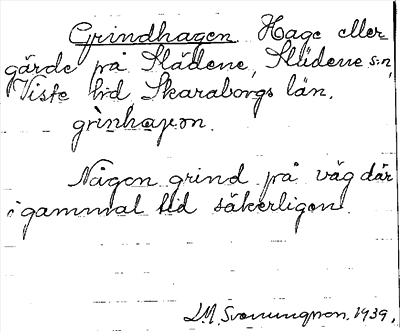 Grindhagen Hage eller
gärde på Slädene, Slädene s:n,
Viste hd, Skaraborgs län.
grìnhaɡon.
Någon grind på väg där
i gammal tid säkerligen.
L.M. Svenungsson. 1939.